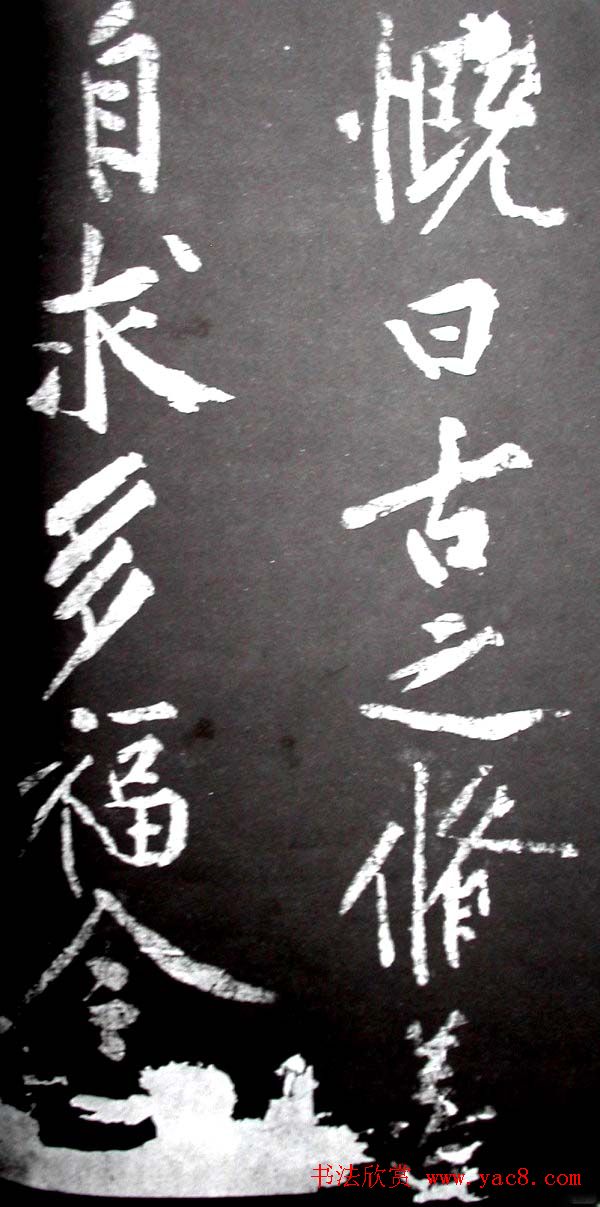 慨曰古之脩
自求多福
书法欣赏 www.yac8.com